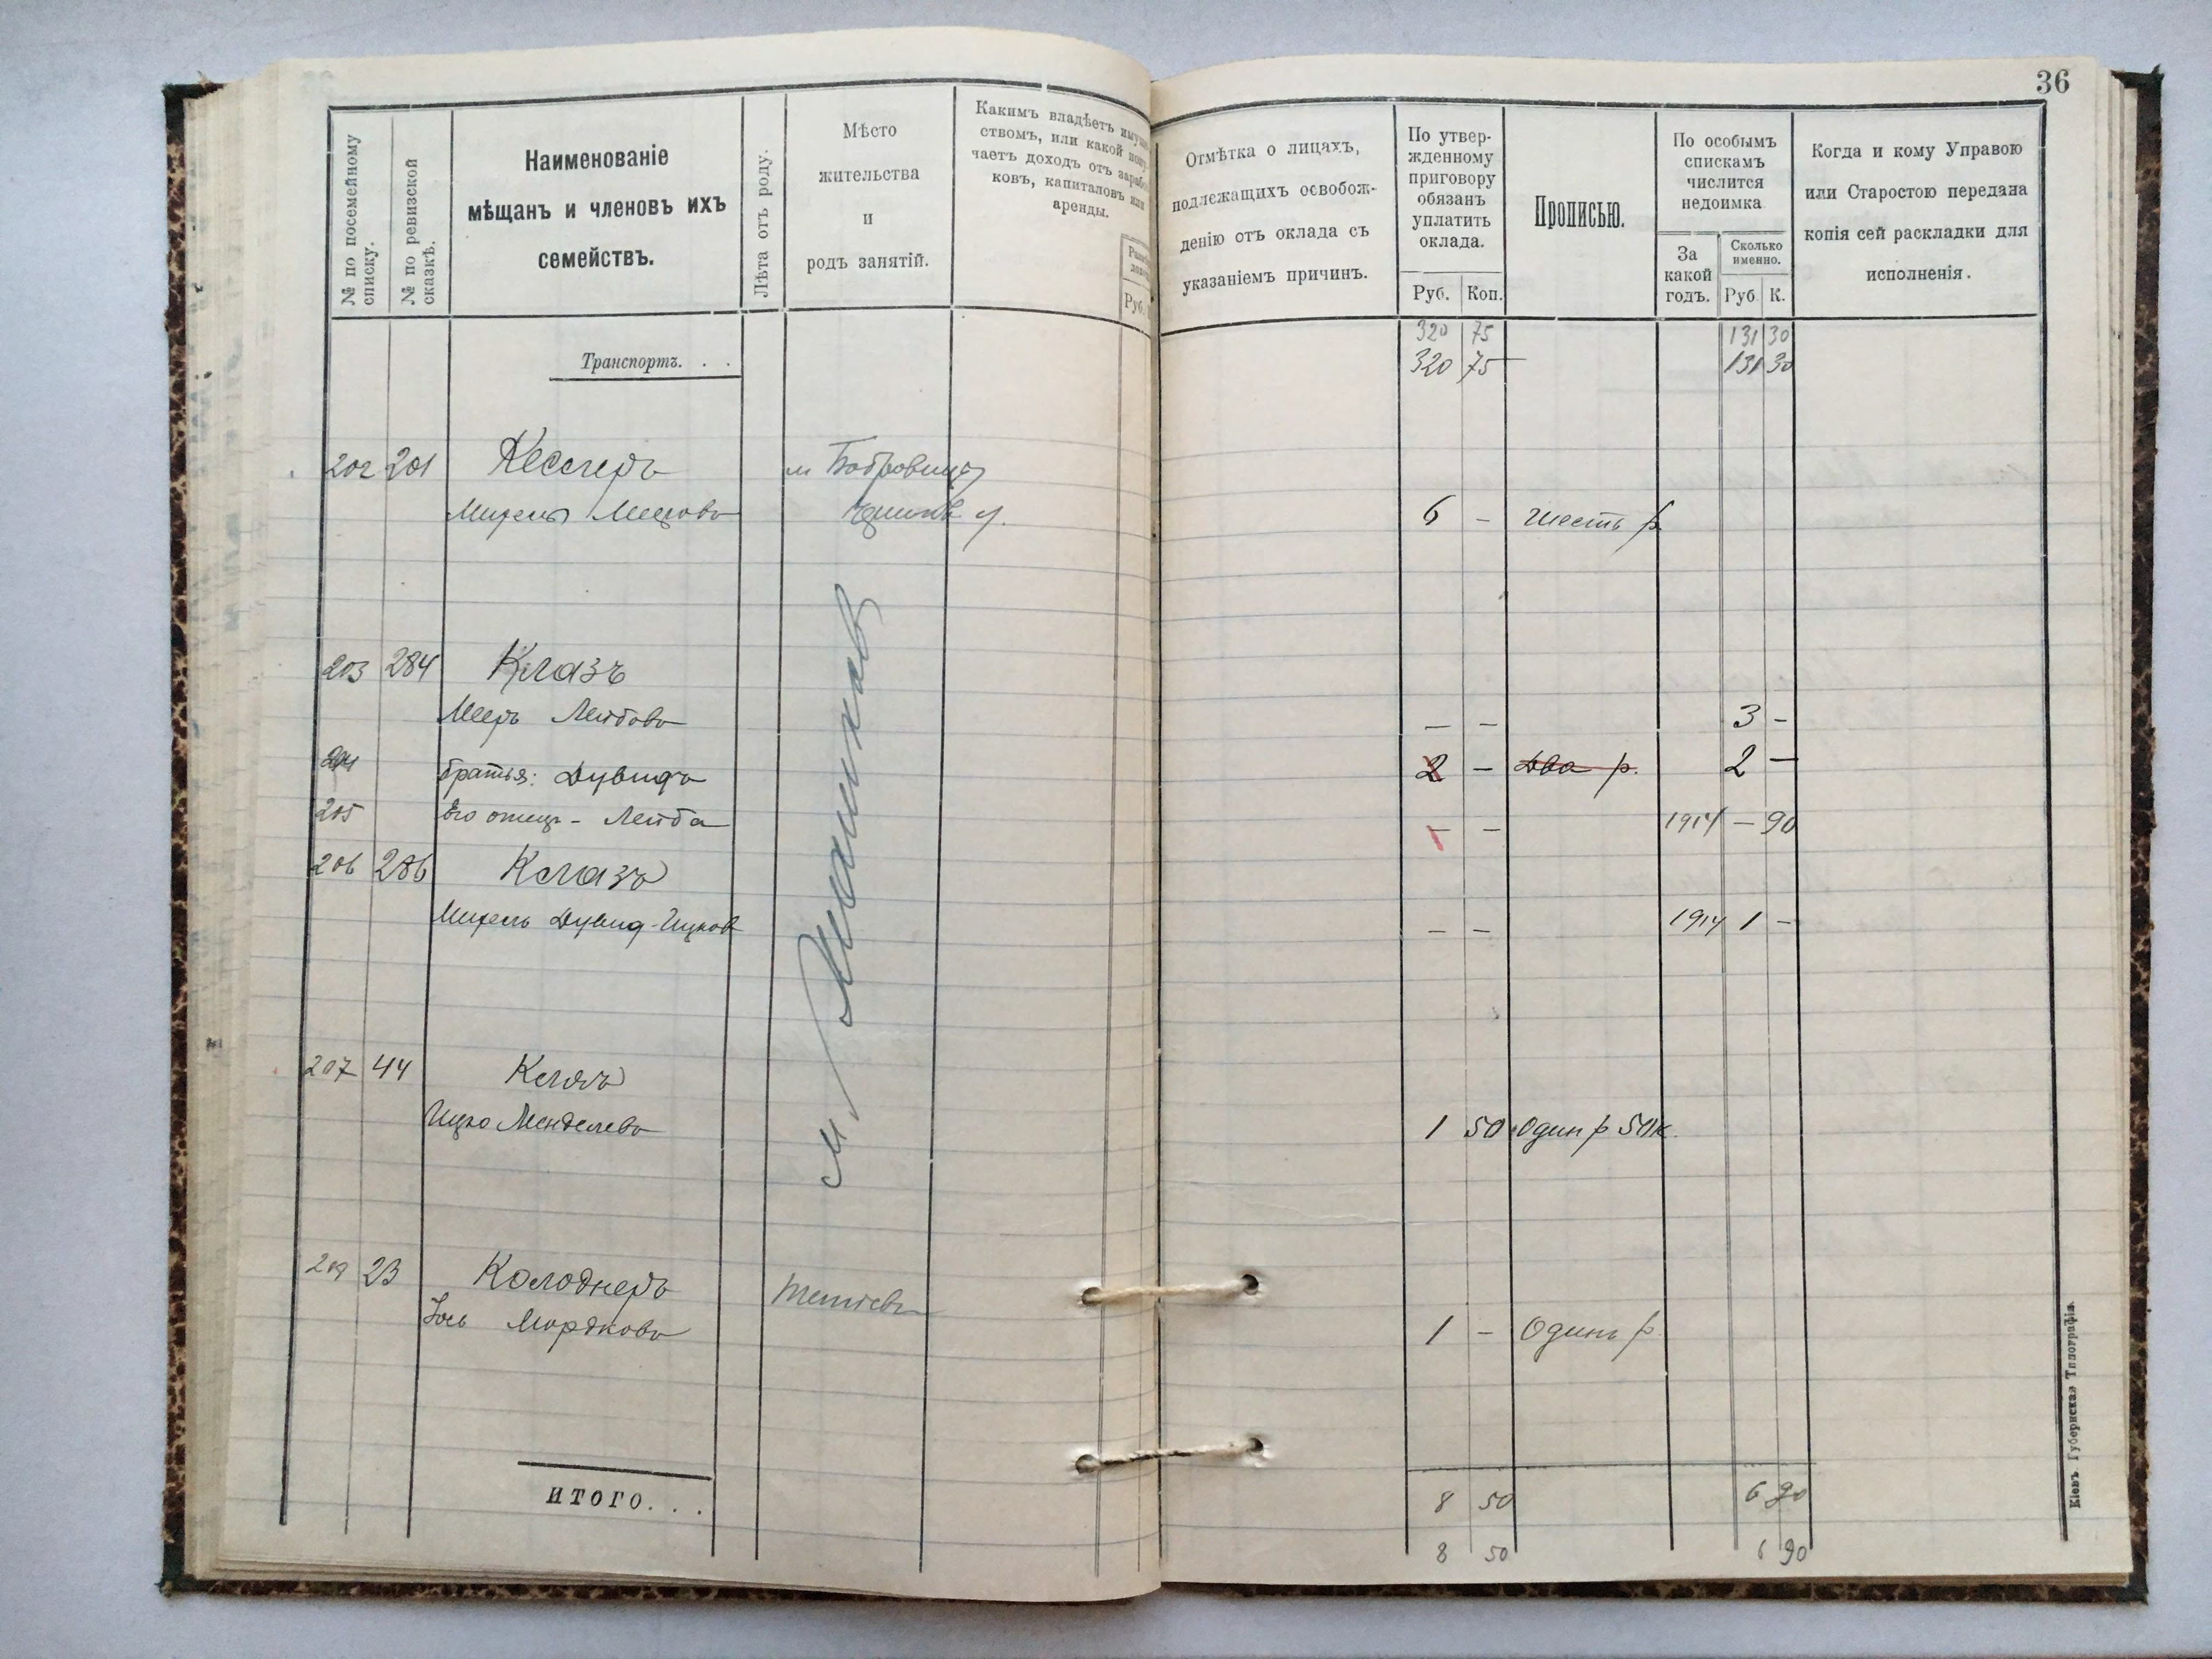 36
№ по посемейному списку.
№ по ревизской сказкѣ.
Наименованіе
мѣщанъ и членовъ ихъ
семействъ.
Лѣта отъ роду.
Мѣсто
жительства
и
родъ занятій.
Какимъ владѣетъ имуще
ствомъ, или какой полу
чаетъ доходъ отъ зарабо
ковъ, капиталовъ или
аренды.
Руб.
Отмѣтка о лицахъ,
подлежащихъ освобож-
денію отъ оклада съ
указаніемъ причинъ.
По утвер-
жденному
приговору
обязанъ
уплатить
оклада.
Руб. Коп.
Прописью.
По особымъ
спискамъ
числится
недоимка
За
какой
годъ.
Сколько
именно.
Руб К.
Когда и кому Управою
или Старостою передана
копія сей раскладки для
исполненія.
320 75 131 30
Транспортъ. . . 320 75 131 30
202 201 Кесслеръ м Бобровица
6 - шесть р.
203 284 Клазъ
Мееръ Лейбовъ - - 3 -
204 братья: Дувидъ 2 - два р. 2 -
205 Его отецъ - Лейба - - 1914 - 90
206 286 Клазъ
Дувид-Ицков - - 1914 1 -
207 44
Ицко Менделевъ 1 50 Один р 50 к.
208 23 Колоднеръ
Мордковъ 1 - Одинъ р
ИТОГО. . . 8 50 6 90
8 50 6 90
Кіевъ. Губернская Типографія.